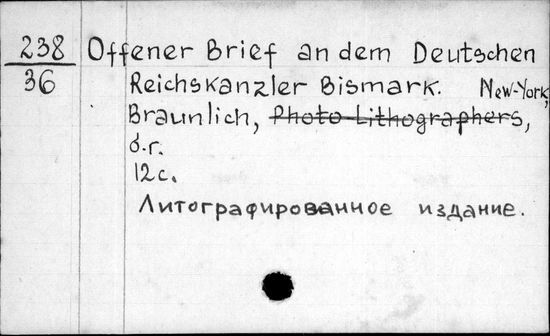 238
36
Offener Brief an dem Deutschen
Reichskanzler Bismark. New-York,
Braunlich, Photo-Lithographers,
б.г.
12с.
Литографированное издание.